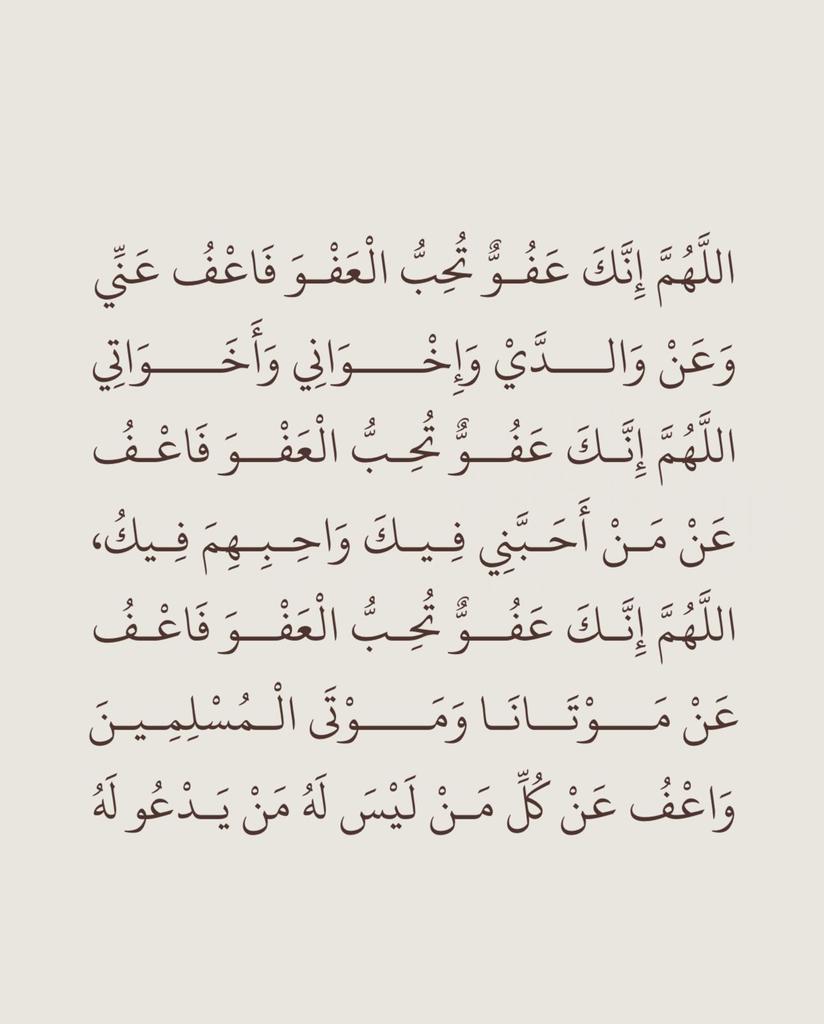 اللَّهُمَّ إِنَّكَ عَفُوٌّ تُحِبُّ الْعَفْوَ فَاعْفُ عَنِّي
وَعَنْ وَالدَّيْ وَإِخْوَانِي وَأَخَوَاتِي
اللَّهُمَّ إِنَّكَ عَفُوٌّ تُحِبُّ الْعَفْوَ فَاعْفُ
عَنْ مَنْ أَحَبَّنِي فِيكَ وَاحِبِهِمَ فِيكُ،
اللَّهُمَّ إِنَّكَ عَفُوٌّ تُحِبُّ الْعَفْوَ فَاعْفُ
عَنْ مَوْتَانَا وَمَوْتَى الْمُسْلِمِينَ
وَاعْفُ عَنْ كُلِّ مَنْ لَيْسَ لَهُ مَنْ يَدْعُو لَهُ